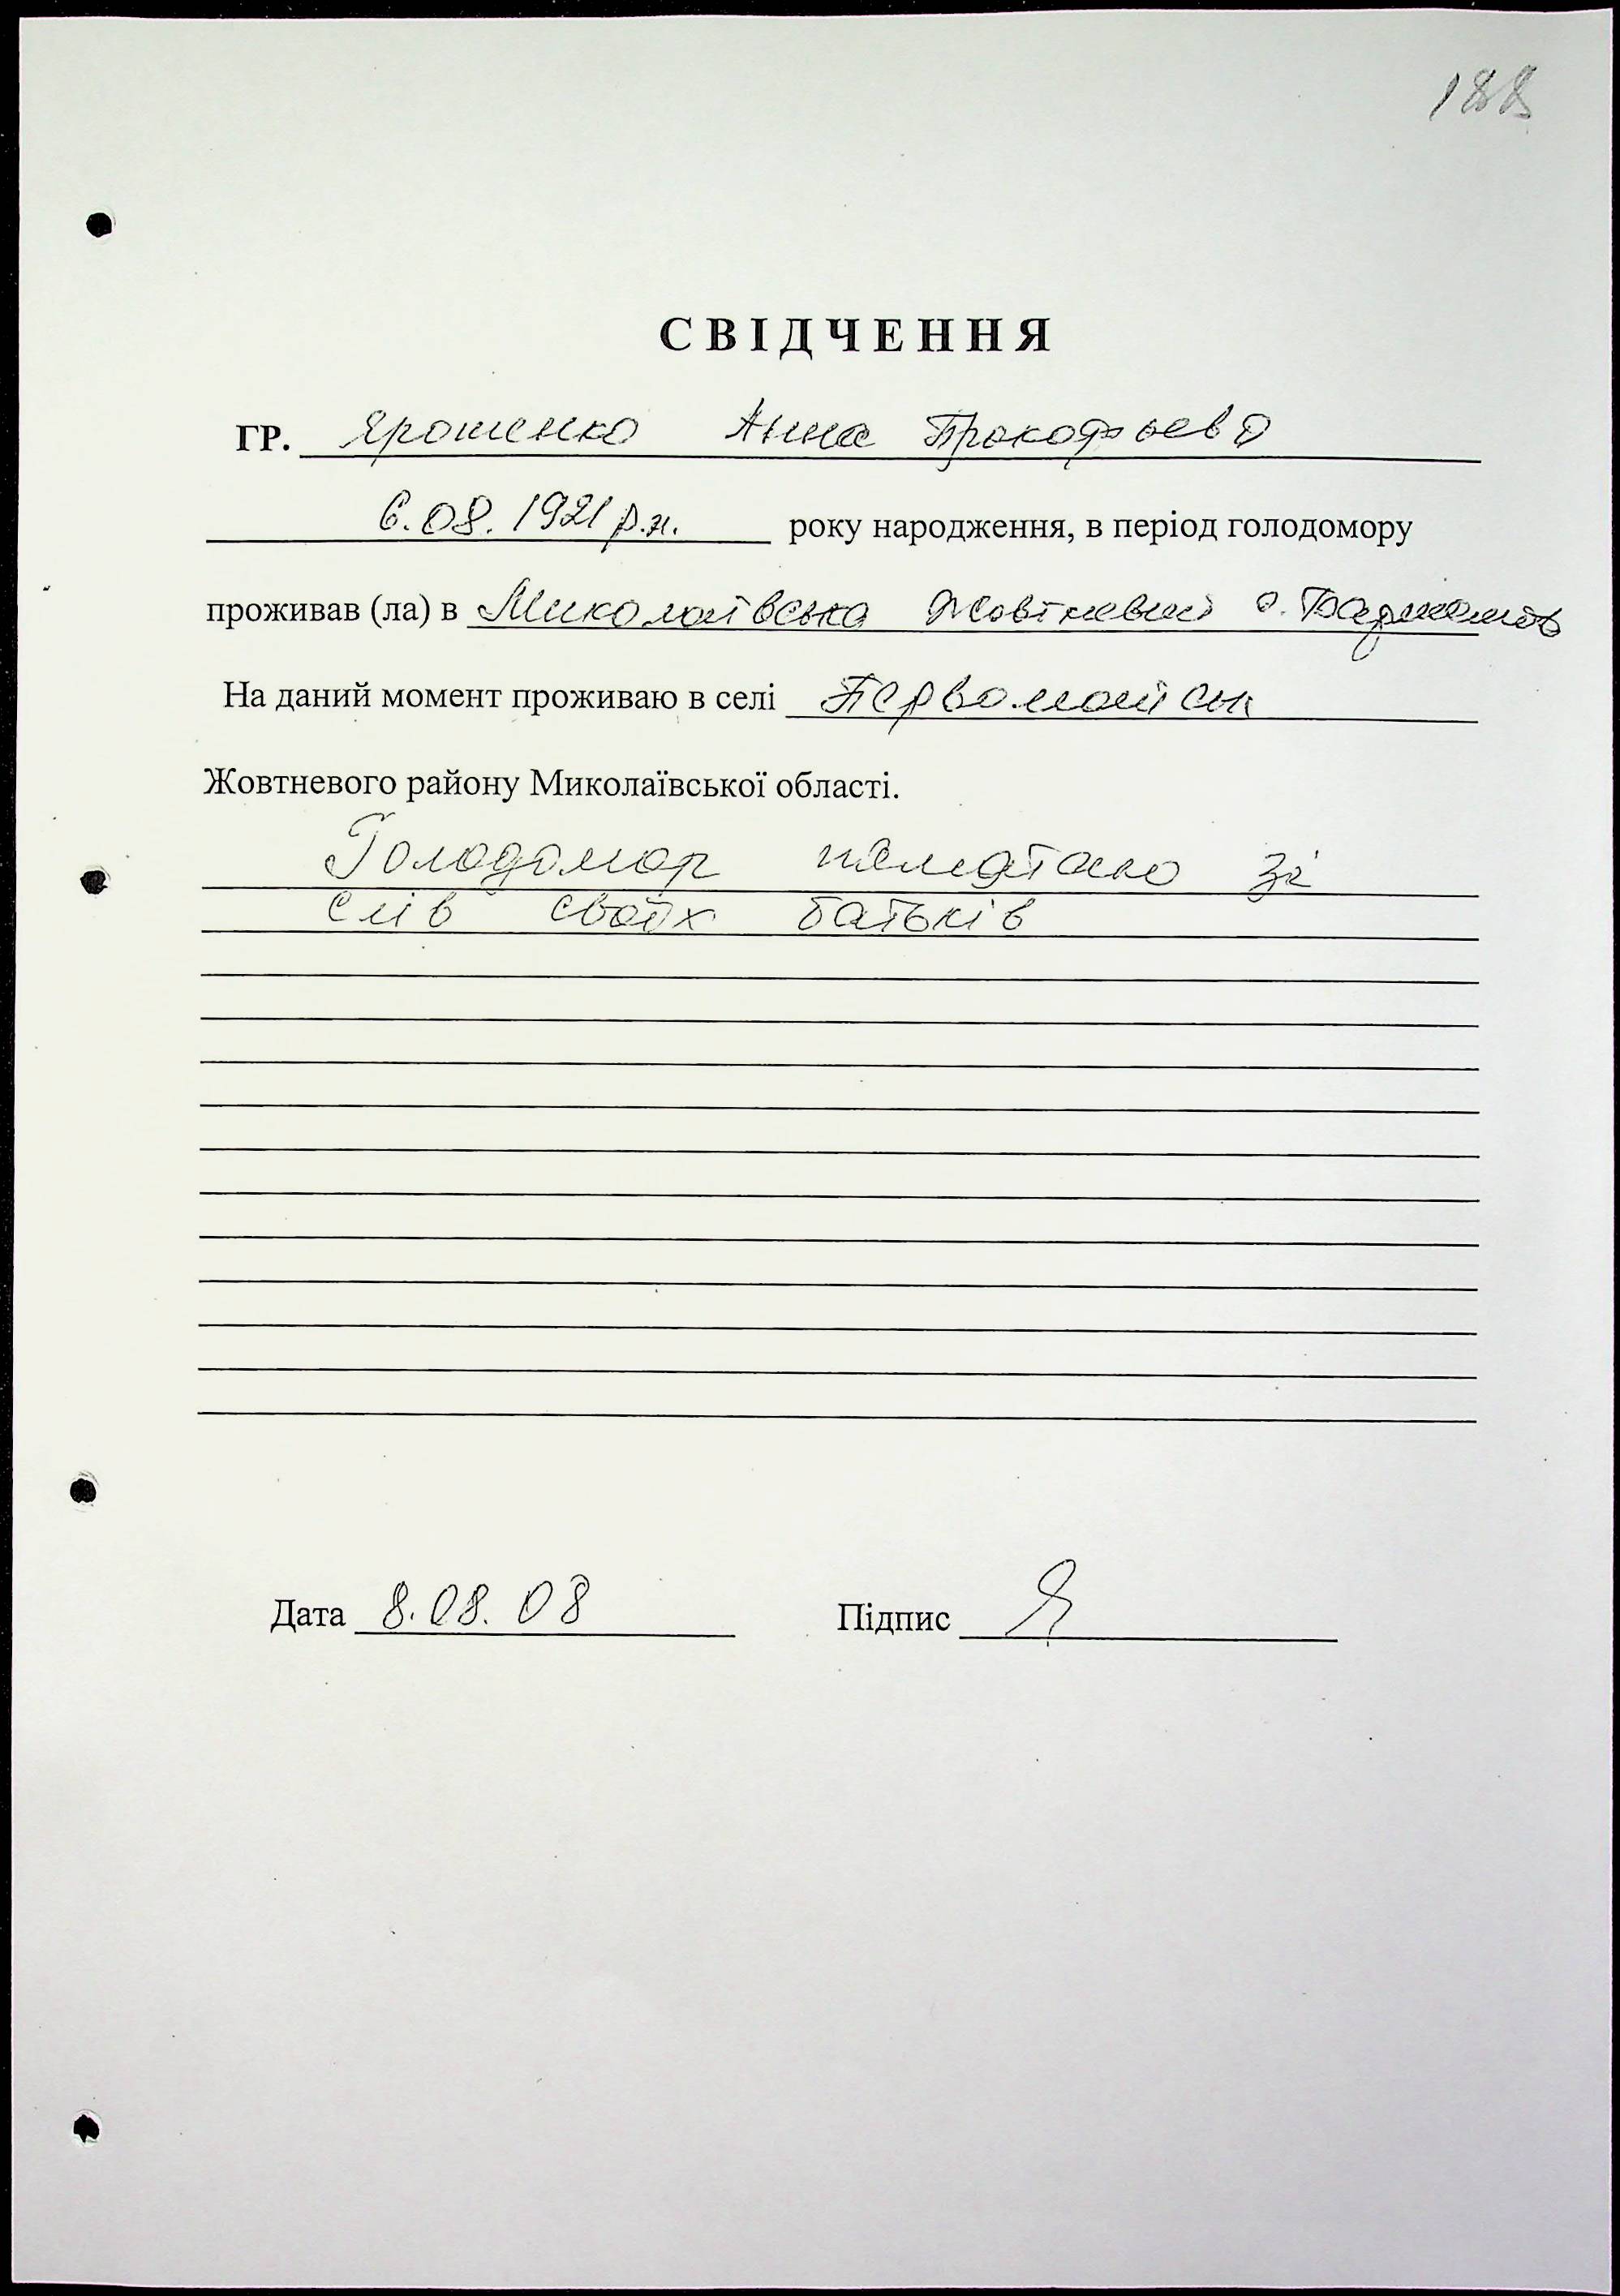 188
СВІДЧЕННЯ
ГР. Ярошенко Анна Прокофьева
6.08.1921 р.н. року народження, в період голодомору
проживав (ла) в Миколаївська Жовтневий с.
На даний момент проживаю в селі Первомайськ
Жовтневого району Миколаївської області.
Голодомор памятаю зі
слів своїх батьків
Дата 8.08.08 Підпис Я